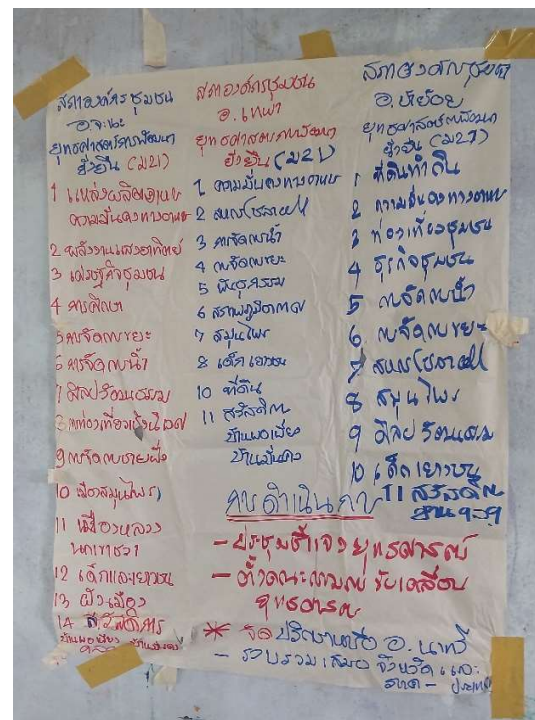 สภาองค์กรชุมชน
อ.จะนะ
ยุทธศาสตร์การพัฒนา
ยั่งยืน (ม21)
1 แหล่งผลิตอาหาร
ความมั่นคงทางอาหาร
2 พลังงานแสงอาทิตย์
3 เศรษฐกิจชุมชน
4 การศึกษา
5 การจัดการขยะ
6 การจัดการน้ำ
7 ศิลปวัฒนธรรม
8 การท่องเที่ยวเชิงนิเวศ
9 การจัดการชายฝั่ง
10 เมืองสมุนไพร
11 เมืองหลวง
นกเขาชวา
12 เด็กและเยาวชน
13 ผังเมือง
14 สวัสดิการ
บ้านพอเพียง
สภาองค์กรชุมชน
อ.เทพา
ยุทธศาสตร์การพัฒนา
ยั่งยืน (ม21)
1 ความมั่นคงทางอาหาร
2 พลังโซลาเซลล์
3 การจัดการน้ำ
4 การจัดการขยะ
5 พันธุกรรม
6 สภาพภูมิอากาศ
7 สมุนไพร
8 เด็กเยาวชน
10 ที่ดิน
11 สวัสดิการ
บ้านพอเพียง
บ้านมั่นคง
สภาองค์กรชุมชน
อ.
ยุทธศาสตร์การพัฒนา
ยั่งยืน (ม27)
1 ที่ดินทำกิน
2 ความมั่นคงทางอาหาร
3 ท่องเที่ยวชุมชน
4 ธุรกิจชุมชน
5 การจัดการน้ำ
6 การจัดการขยะ
7 พลังโซลาเซลล์
8 สมุนไพร
9 ศิลปวัฒนธรรม
10 เด็กเยาวชน
11 สวัสดิการ
การดำเนินการ
- ประชุมชี้แจงยุทธศาสตร์
- ตั้งคณะกรรมการขับเคลื่อน
ยุทธศาสตร์
* อ.นาทวี
- รวบรวมเสนอ จังหวัด และ
ภาค - ประเทศ